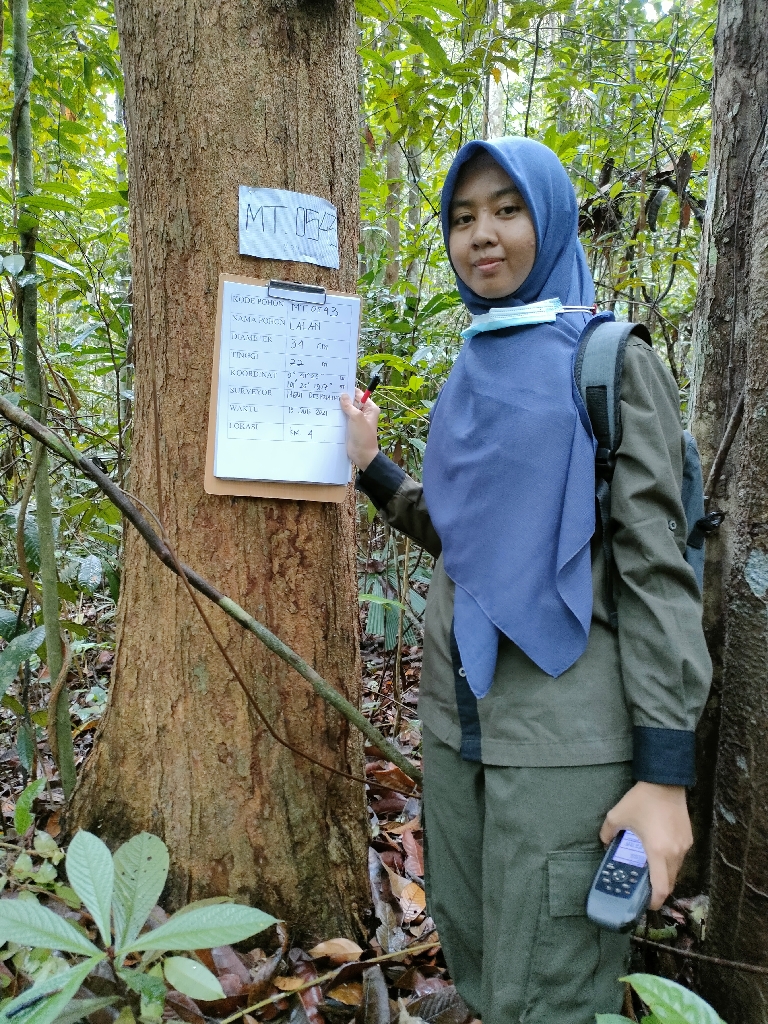 MT. 0543
KODE POHON MT 0543
NAMA POHON LABAN
DIAMETER 31 cm
TINGGI 22 m
KOORDINAT
SURVEYOR
WAKTU 15 JUNI 2021
LOKASI KM 4